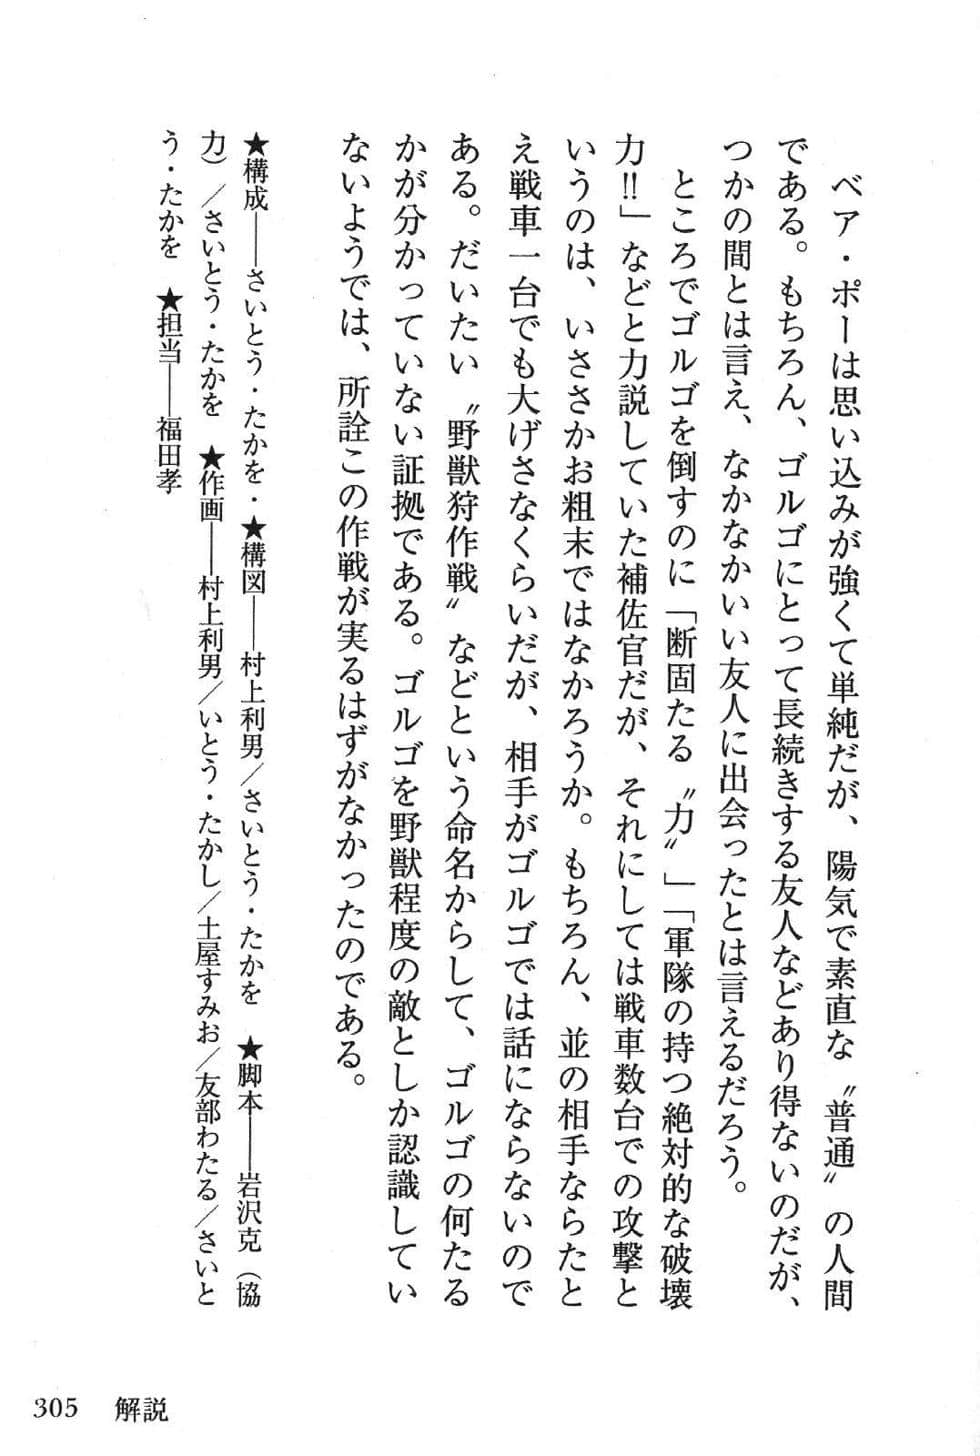 ベア・ポーは思い込みが強くて単純だが、陽気で素直な〝普通〟の人間
である。もちろん、ゴルゴにとって長続きする友人などあり得ないのだが、
つかの間とは言え、なかなかいい友人に出会ったとは言えるだろう。
ところでゴルゴを倒すのに「断固たる〝力〟」「軍隊の持つ絶対的な破壊
力!!」などと力説していた補佐官だが、それにしては戦車数台での攻撃と
いうのは、いささかお粗末ではなかろうか。もちろん、並の相手ならたと
え戦車一台でも大げさなくらいだが、相手がゴルゴでは話にならないので
ある。だいたい〝野獣狩作戦〟などという命名からして、ゴルゴの何たる
かが分かっていない証拠である。ゴルゴを野獣程度の敵としか認識してい
ないようでは、所詮この作戦が実るはずがなかったのである。
★構成――さいとう・たかを・★構図――村上利男／さいとう・たかを ★脚本――岩沢克（協
力）／さいとう・たかを ★作画――村上利男／いとう・たかし／土屋すみお／友部わたる／さいと
う・たかを ★担当――福田孝
305 解説